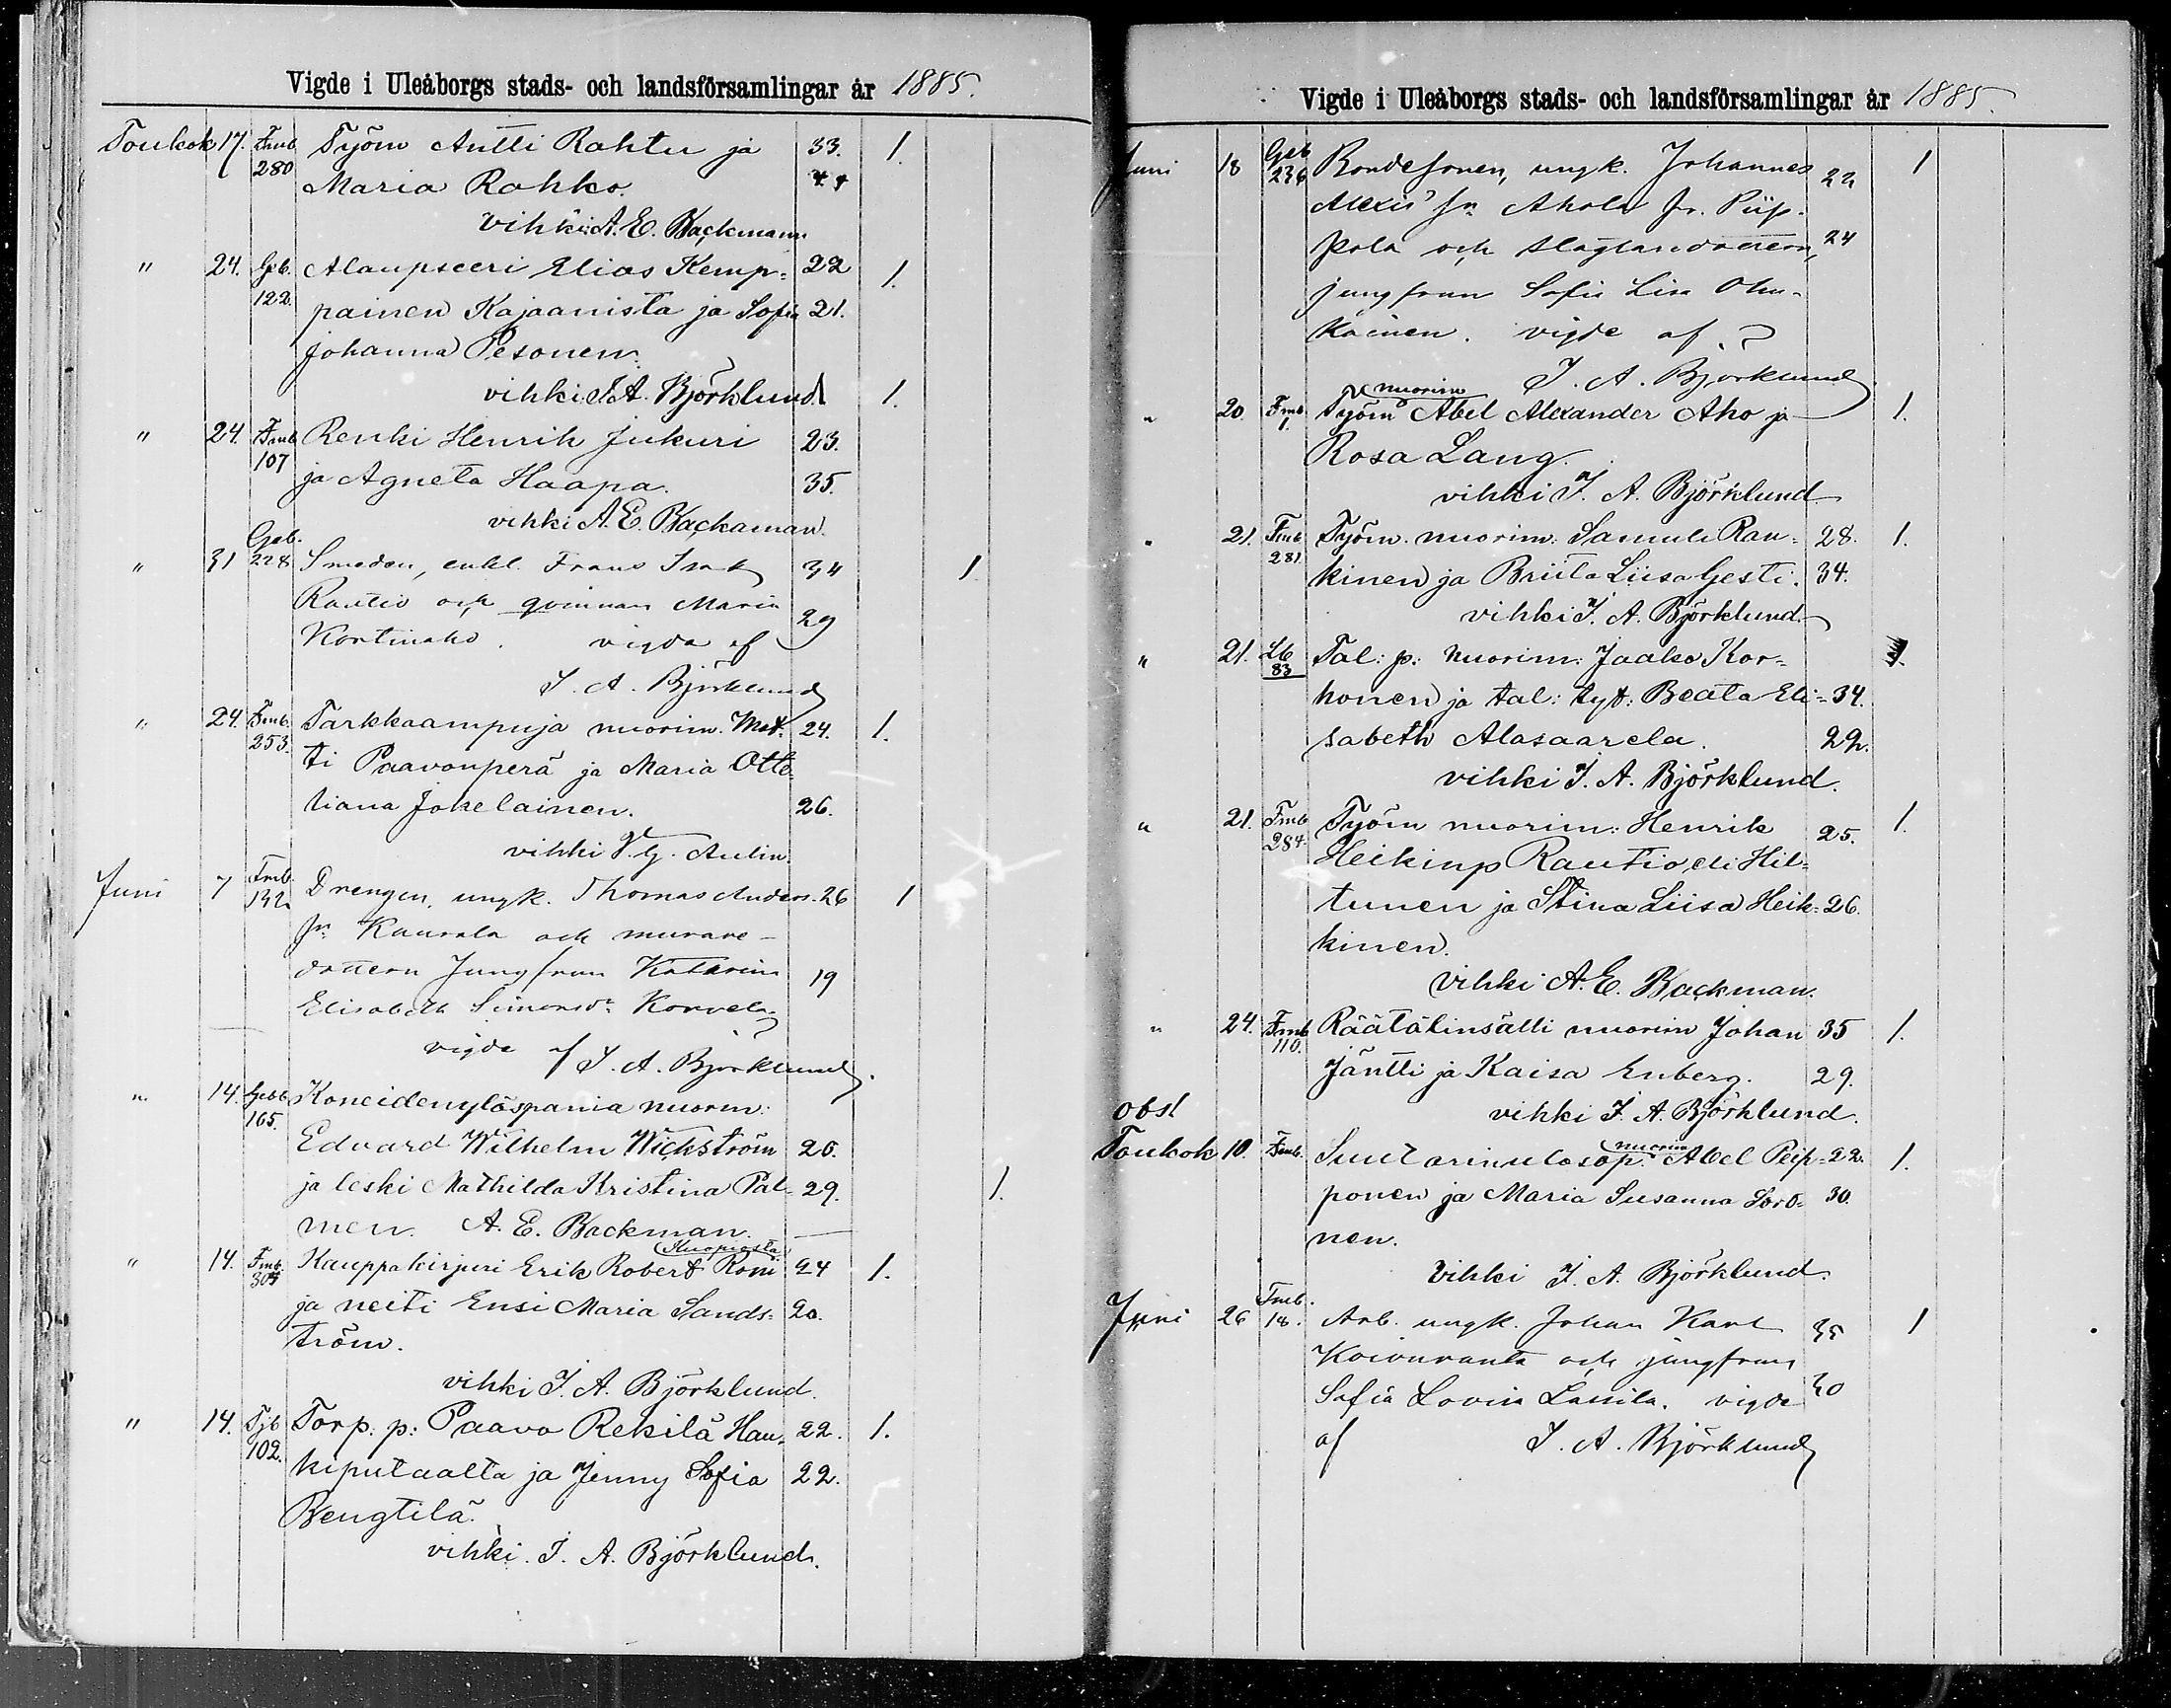 Vigde i Uleåborgs stads- och landsförsamlingar år 1885.
Toukok 17. Fmb 280 Työm Antti Rahtu ja 33. 1.
Maria Rahko. 44
vihki: A. E. Backman.
" 24. Geb. 122. Alaupseeri Elias Kemp= 22 1.
painen Kajaanista ja Sofia 21.
Johanna Pesonen.
vihki J. A. Björklund. 1.
" 24. Fmb 107 Renki Henrik Jukuri 23.
ja Agneta Haapa. 35.
vihki A. E. Backaman.
" 31 Geb. 228 Smeden, enkl. Frans Isak 34 1
Rautio och qvinnan Maria 29
Kortinaho. vigda af
J. A. Björklund
" 24. Fmb. 253. Tarkkaampuja nuorim. Mat= 24. 1.
ti Paavonperä ja Maria Otte
liana Jokelainen. 26.
vihki V. G. Aulin.
Juni 7 Fmb. 192 Drengen, ungk. Thomas Anders. 26 1
sn Kaurala och murare-
dottern Jungfrun Katarina 19
Elisabeth Simonsdr Korvela
vigde af J. A. Björklund.
" 14. Gebb 165. Koneidenylöspania nuorm:
Edvard Wilhelm Wickström 26.
ja leski Mathilda Kristina Pal- 29. 1.
men. A. E. Backman.
Kuopiosta
" 14. Fmb. 305 Kauppakirjuri Erik Robert Roni 24 1.
ja neiti Ensi Maria Sands= 20.
tröm.
vihki J. A. Björklund.
" 14. Tjb 102. Torp. p: Paavo Rekilä Hau= 22. 1.
kiputaalta ja Jenny Sofia 22.
Bengtilä.
vihki. J. A. Björklund.
Vigde i Uleåborgs stads- och landsförsamlingar år 1885.
Juni 18 Geb 236 Bondesonen, ungk. Johannes 22 1
Alexis' sn Ahola fr. Piip-
pola och dottern, 24
jungfrun Sofia Lisa
kainen. vigde af
J. A. Björklund
nuorim
" 20. Fmb 1. Työm Abel Alexander Aho ja 1.
Rosa Lang.
vihki J. A. Björklund
" 21. Fmb 281 Työm. nuorim. Samuli Ran= 28. 1.
kinen ja Briita Liisa Gesti. 34.
vihki J. A. Björklund.
" 21. Lb 83 Tal: p: Nuorim: Jaako Kor= 1.
honen ja tal: tyt: Beata Eli= 34.
sabeth Alasaarela. 22.
vihki J. A. Björklund.
" 21. Fmb 284. Työm nuorim: Henrik 25. 1.
Heikinp Rautio eli Hil=
tunen ja Stina Liisa Heik= 26.
kinen.
vihki A. E. Backman.
" 24. Fmb 110. Räätälinsälli nuorim Johan 35 1.
Jäntti ja Kaisa Enberg. 29.
vihki J. A. Björklund.
obs!
nuorim
Toukok 10. Fmb. Suutarinulosop. Abel Peip= 22. 1.
ponen ja Maria Susanna Soro= 30.
nen.
Vihki J. A. Björklund.
Juni 26 Fmb. 18. Arb. ungk. Johan Karl 35 1
Koivuranta och jungfrun
Sofia Lovisa Lassila. vigde 30
af J. A. Björklund